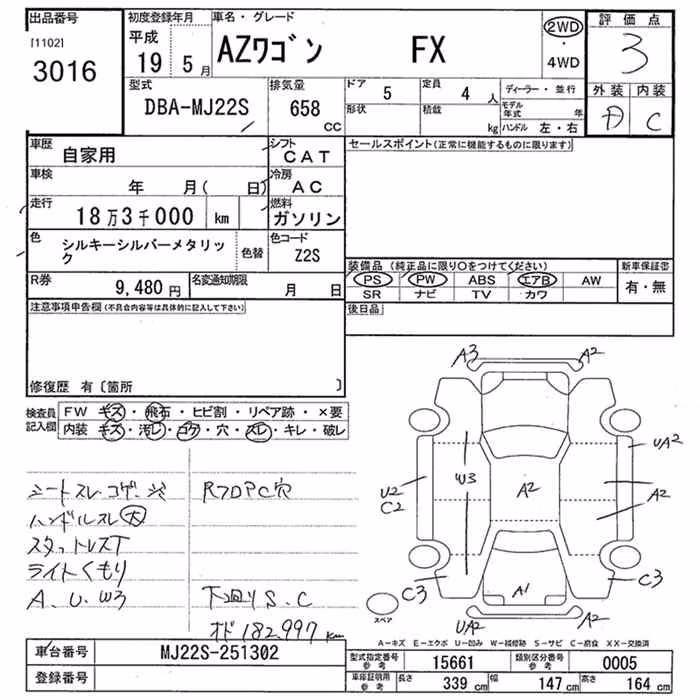 出品番号
[1102]
3016
初度登録年月
平成
19 5月
車名・グレード
AZワゴン FX
2WD
・
4WD
評価点
3
外装 内装
D C
型式
DBA-MJ22S
排気量
658
cc
ドア 5
定員 4 人
ディーラー・並行
形状
積載 kg
モデル年式 年
ハンドル 左・右
車歴
自家用
シフト
CAT
セールスポイント(正常に機能するものに限ります)
車検
年 月( 日)
冷房
AC
走行
18万3千000 km
燃料
ガソリン
色
シルキーシルバーメタリック
色替
色コード
Z2S
R券
9,480 円
名変通知期限
月 日
装備品 (純正品に限り○をつけてください)
PS PW ABS エアB AW
SR ナビ TV カワ
新車保証書
有・無
後日品
注意事項申告欄(不具合内容等は具体的に記入して下さい)
修復歴 有〔箇所 〕
検査員記入欄
FW キズ・飛石・ヒビ割・リペア跡・×要
内装 キズ・汚レ・コゲ・穴・スレ・キレ・破レ
シートスレ コゲ
ハンドルスレ 大
スタットレスT
ライトくもり
A. U. W3
RフロアC穴
下廻りS.C
オド182,997km
A3
A2
UA2
U2
C2
W3
A2
A2
C3
A1
C3
UA2
A2
スペア
A-キズ E-エクボ U-凹み W-補修跡 S-サビ C-腐食 XX-交換済
車台番号
MJ22S-251302
登録番号
型式指定番号
参考
15661
類別区分番号
参考
0005
車庫証明用
参考
長さ 339 cm
幅 147 cm
高さ 164 cm